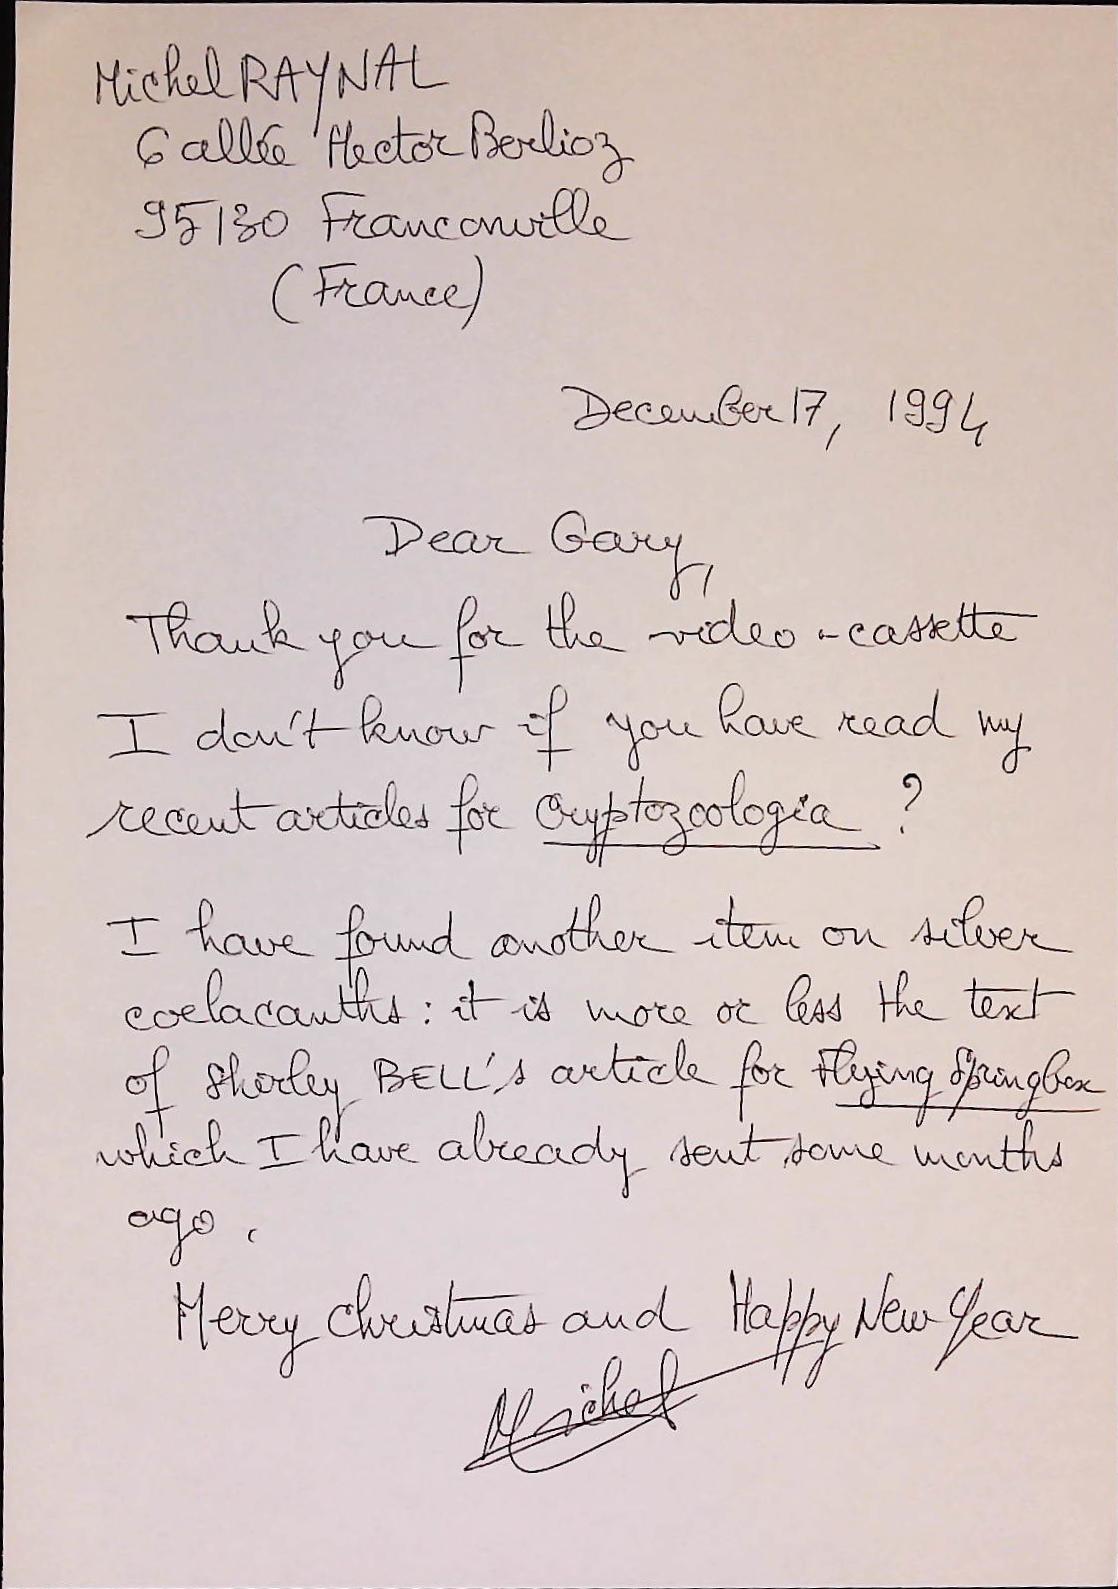 Michel RAYNAL
6 allée Hector Berlioz
95130 Franconville
(France)
December 17, 1994
Dear Gary,
Thank you for the video-cassette
I don't know if you have read my
recent articles for Cryptozoologia ?
I have found another item on silver
coelacanths : it is more or less the text
of Shirley BELL's article for Flying Springbox
which I have already sent some months
ago.
Merry Christmas and Happy New Year
Michel